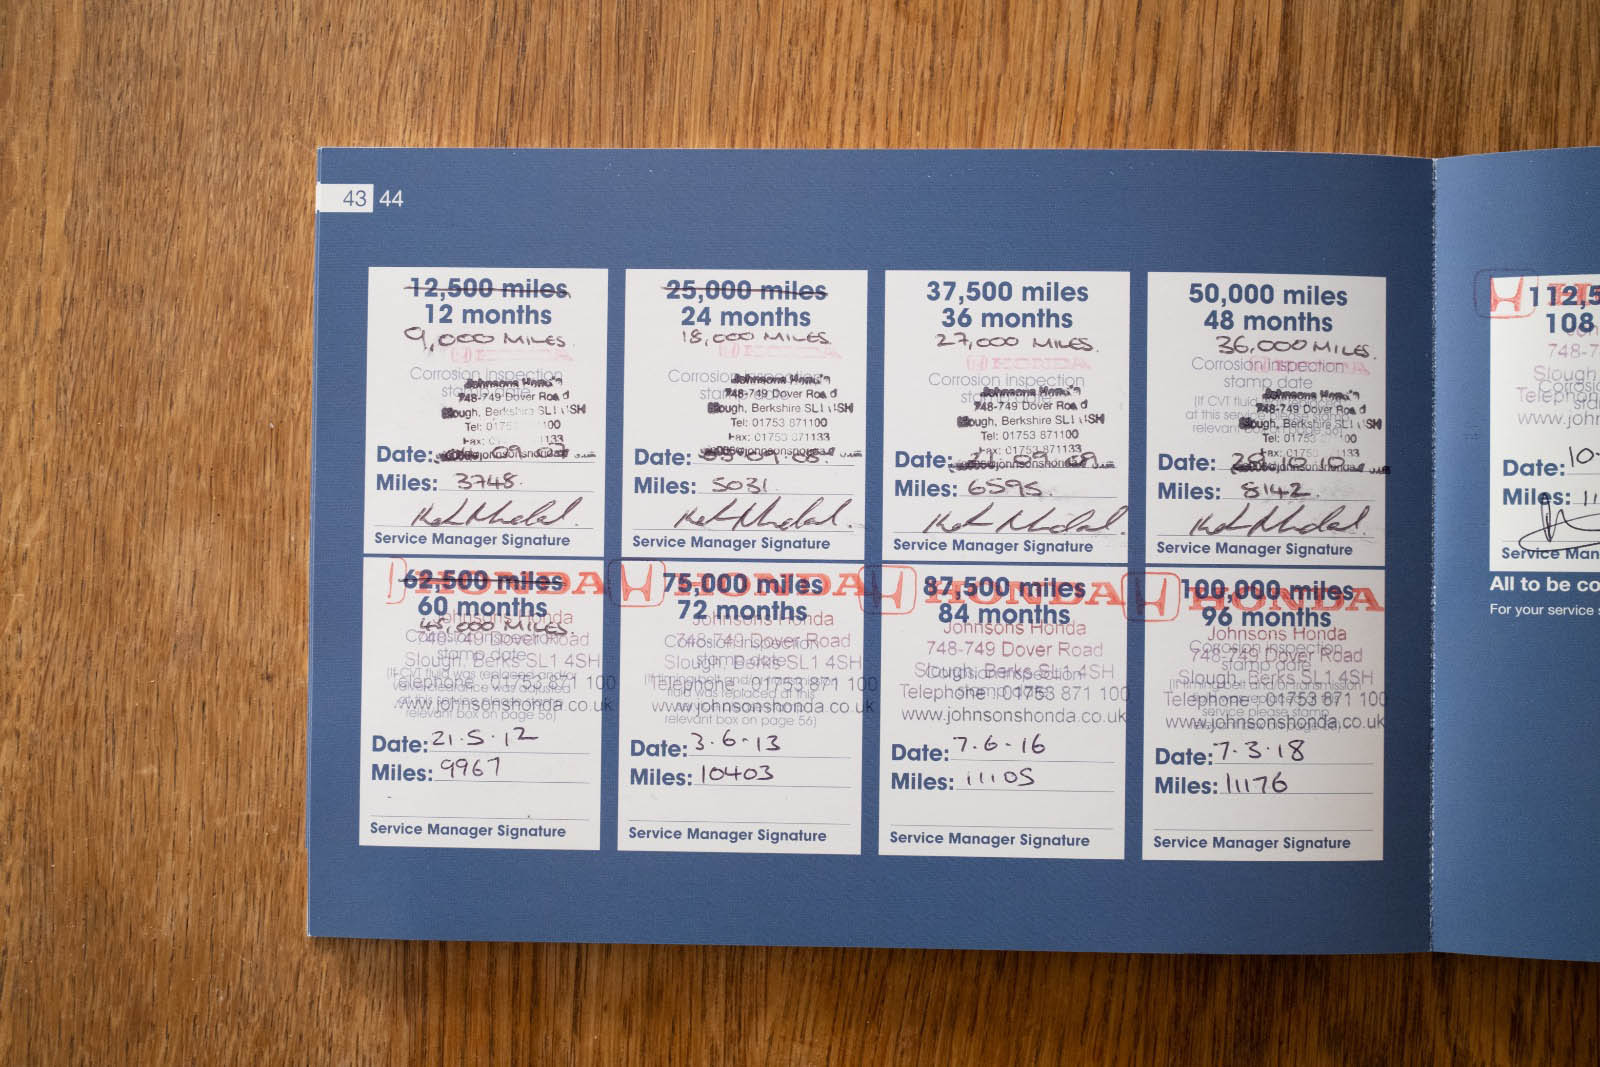 43 44
12,500 miles
12 months
9,000 MILES.
HONDA
Corrosion inspection
stamp date
Johnsons Honda
748-749 Dover Road
Slough, Berkshire SL1 4SH
Tel: 01753 871100
Date: 09.07
Miles: 3748.
Service Manager Signature
25,000 miles
24 months
18,000 MILES.
HONDA
Corrosion inspection
stamp date
Johnsons Honda
748-749 Dover Road
Slough, Berkshire SL1 4SH
Tel: 01753 871100
Fax: 01753 871133
Date: 09.08.
Miles: 5031
Service Manager Signature
37,500 miles
36 months
27,000 MILES.
HONDA
Corrosion inspection
stamp date
Johnsons Honda
748-749 Dover Road
Slough, Berkshire SL1 4SH
Tel: 01753 871100
Fax: 01753 871133
Date: 21.09.09
Miles: 6595.
Service Manager Signature
50,000 miles
48 months
36,000 MILES.
HONDA
Corrosion inspection
stamp date
Johnsons Honda
748-749 Dover Road
Slough, Berkshire SL1 4SH
Date: 10.10
Miles: 8142.
Service Manager Signature
62,500 miles
HONDA
60 months
45,000 MILES.
Johnsons Honda
Corrosion inspection
748-749 Dover Road
stamp date
Slough, Berks SL1 4SH
Telephone 01753 871 100
www.johnsonshonda.co.uk
relevant box on page 56)
Date: 21.5.12
Miles: 9967
Service Manager Signature
75,000 miles
HONDA
72 months
Johnsons Honda
748-749 Dover Road
Corrosion inspection
stamp date
Slough, Berks SL1 4SH
Telephone 01753 871 100
www.johnsonshonda.co.uk
relevant box on page 56)
Date: 3.6.13
Miles: 10403
Service Manager Signature
87,500 miles
HONDA
84 months
Johnsons Honda
748-749 Dover Road
Slough, Berks SL1 4SH
Corrosion inspection
stamp date
Telephone 01753 871 100
www.johnsonshonda.co.uk
Date: 7.6.16
Miles: 11105
Service Manager Signature
100,000 miles
HONDA
96 months
Johnsons Honda
748-749 Dover Road
Corrosion inspection
stamp date
Slough, Berks SL1 4SH
Telephone 01753 871 100
www.johnsonshonda.co.uk
Date: 7.3.18
Miles: 11176
Service Manager Signature
112,5
108
748-7
Slough
Telephon
www.joh
Date: 10-
Miles: 11
Service Man
All to be co
For your service